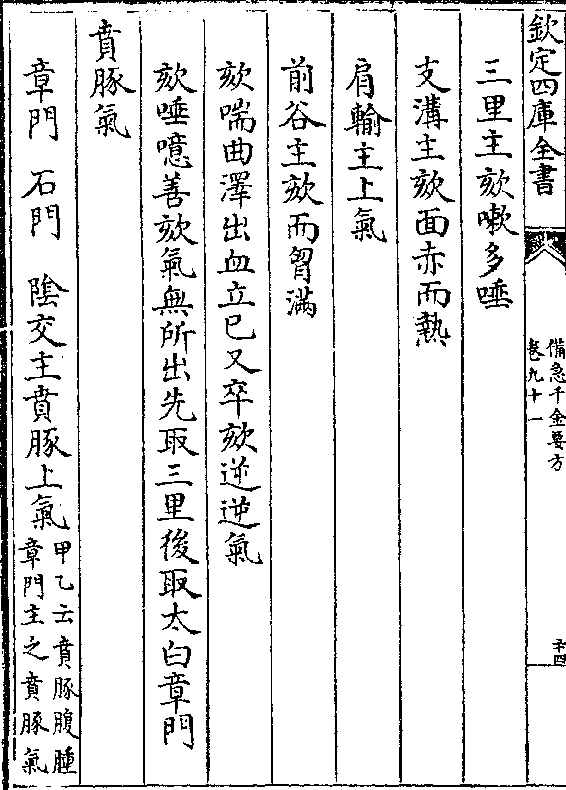 欽定四庫全書
備急千金要方
卷九十一
二十四
三里主欬嗽多唾
支溝主欬面赤而熱
肩輸主上氣
前谷主欬而胷滿
欬喘曲澤出血立已又卒欬逆逆氣
欬唾噫善欬氣無所出先取三里後取太白章門
賁豚氣
章門 石門 隂交主賁豚上氣
甲乙云賁豚腹腫
章門主之賁豚氣